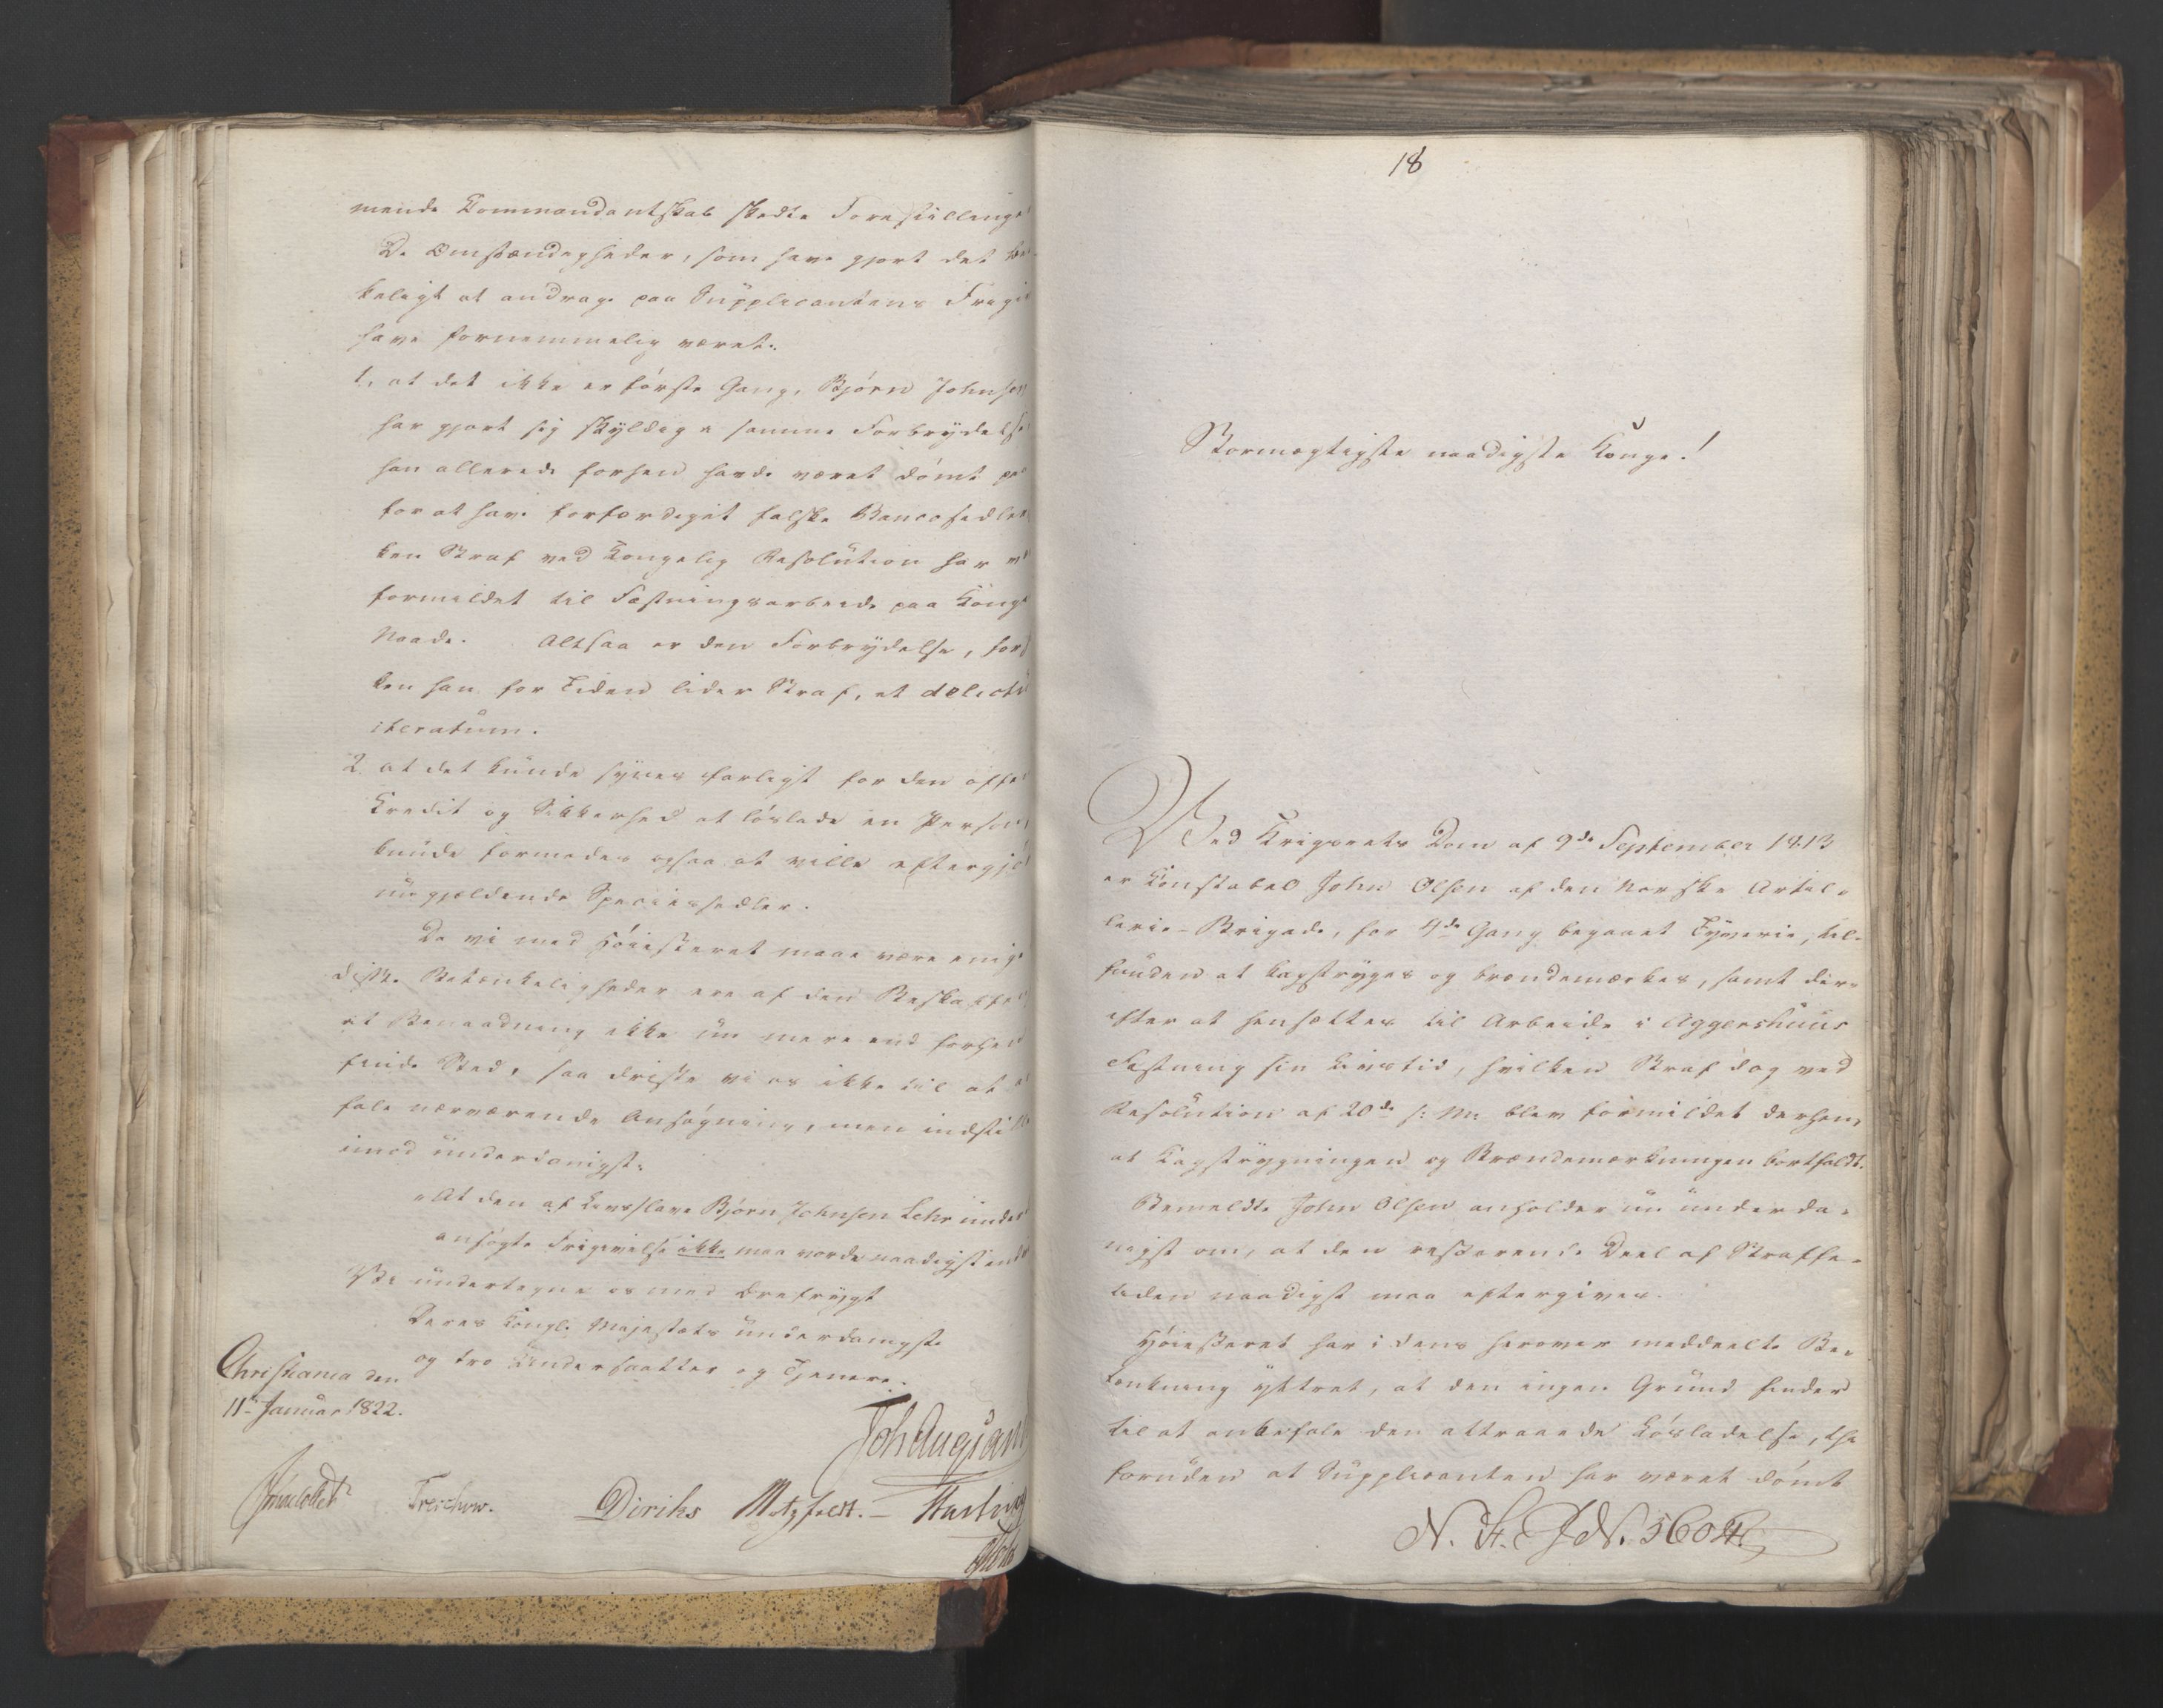 mende Commandantskab skedte Forestillinge
De Omstændigheder, som have gjort det
keligt at andrage paa Supplicantens Frigi
have fornemmelig været:
1, at det ikke er første Gang, Bjørn Johnsen
har gjort sig skyldig i samme Forbrydelse
han allerede forhen havde været dømt paa
for at have forfærdiget falske Bancosedler
ken Straf ved Kongelig Resolution har
formildet til Fæstningsarbeide paa Konge
Naade. Altsaa er den Forbrydelse, for
ken han for Tiden lider Straf, et delictu
iteratum.
2, at det kunde synes farligt for den offe
Credit og Sikkerhed at løslade en Person
kunde formodes ogsaa at ville eftergjø
nu gjældende Speciessedler.
Da vi med Høiesteret maae være enige
disse Betænkeligheder ere af den Beskaffen
at Benaadning ikke nu mere end forhen
finde Sted, saa driste vi os ikke til at
fale nærværende Ansøgning, men indstille
imod underdanigst:
"At den af Livsslave Bjørn Johnsen Lehr under
ansøgte Frigivelse ikke maa vorde naadigst
Vi undertegne os med Ærefrygt
Deres Kongl. Majestæts underdanigste
og tro Undersaatter og Tjenere.
Christiania den
11te Januar 1822.
Treschow. Diriks Motzfeldt.
18
Stormægtigste naadigste Konge!
Ved Krigsrets Dom af 9de September 1813
er Konstabel John Olsen af den Norske Artil-
lerie-Brigade, for 4de Gang begaaet Tyverie, til-
funden at kagstryges og brændemærkes, samt der-
efter at hensættes til Arbeide i Aggershuus
Fæstning sin Livstid, hvilken Straf dog ved
Resolution af 20de s: M: blev formildet derhen,
at Kagstrygningen og Brændemærkningen bortfaldt.
Bemeldte John Olsen anholder nu underda-
nigst om, at den resterende Deel af Straffe-
tiden naadigst maa eftergives.
Høiesteret har i dens herover meddeelte Be-
tænkning yttret, at den ingen Grund finder
til at anbefale den attraaede Løsladelse, thi
foruden at Supplicanten har været dømt